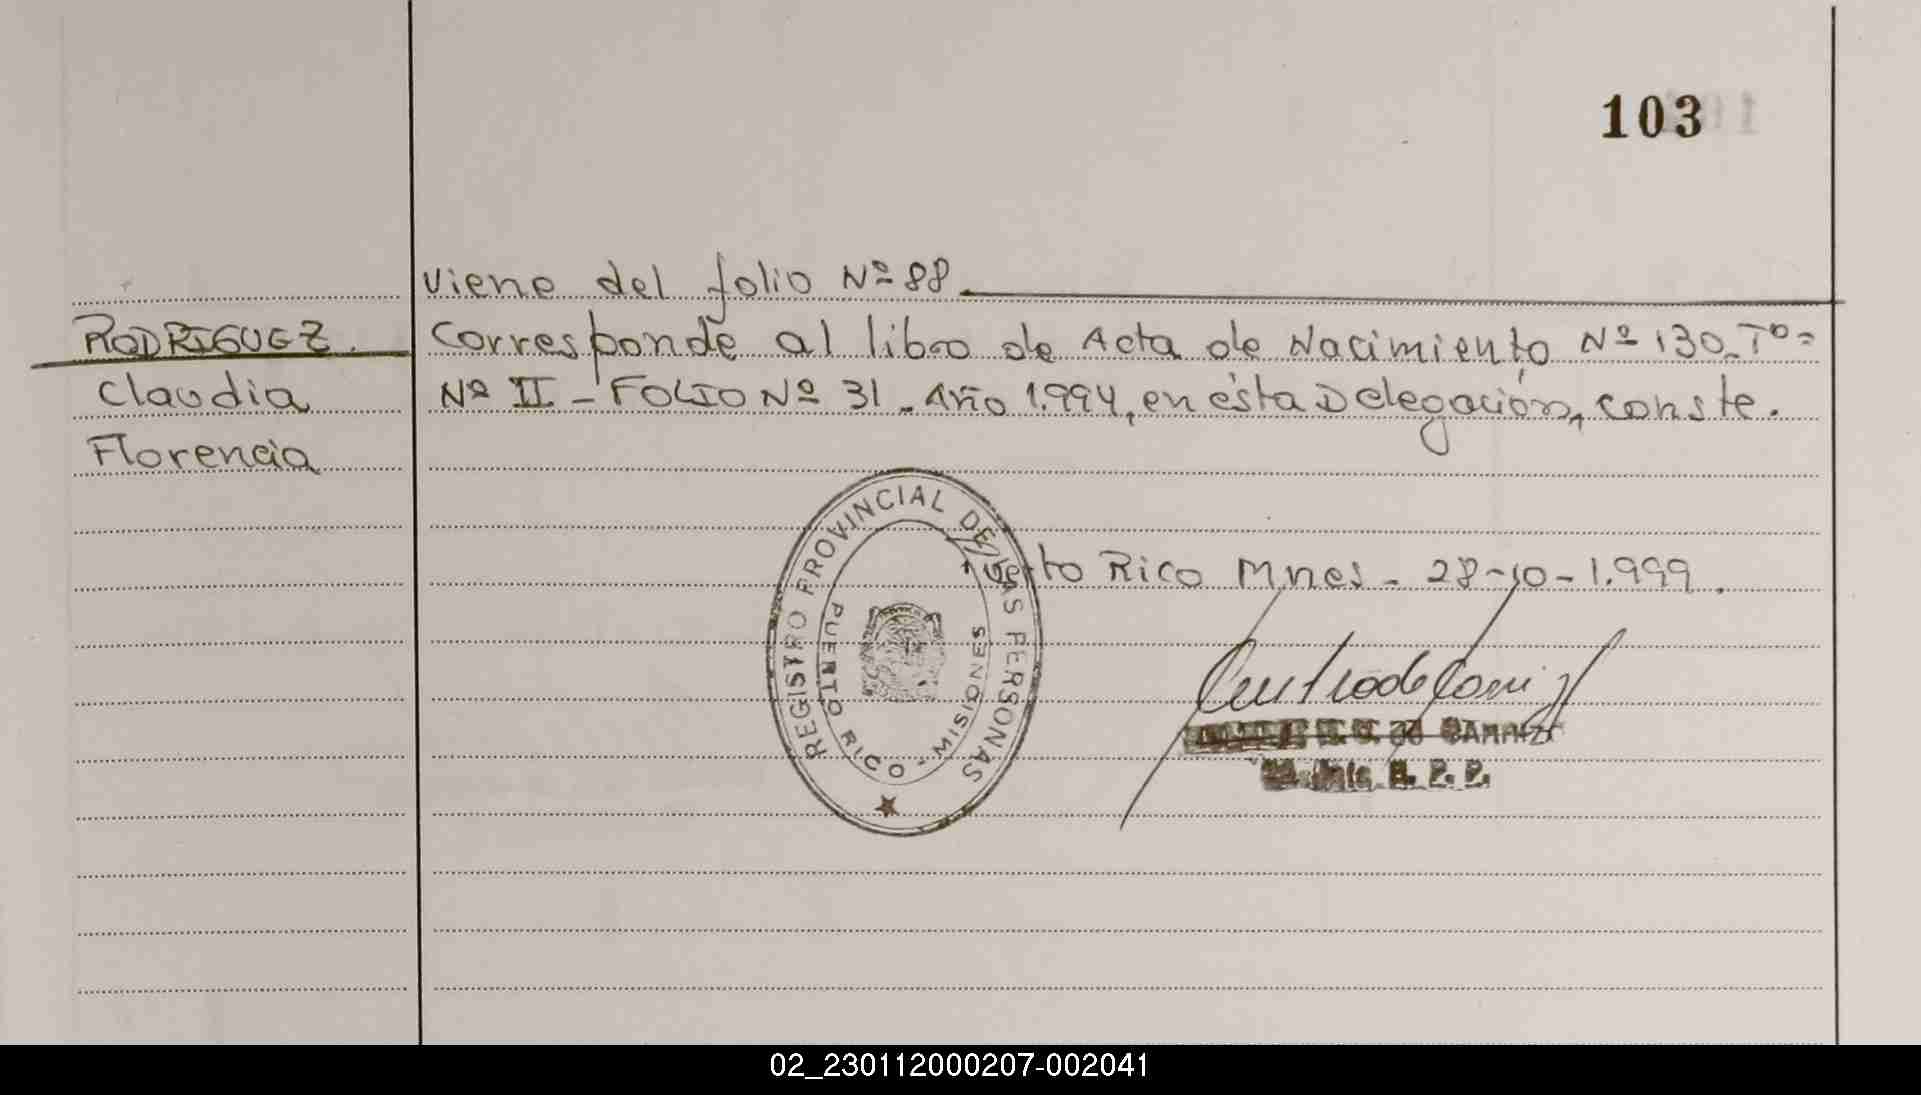 103
viene del folio Nº 88
RODRIGUEZ. corresponde al libro de Acta de Nacimiento Nº 130_Tº=
Claudia Nº II - FOLIO Nº 31_ Año 1.994, en ésta Delegación, conste.
Florencia
REGISTRO PROVINCIAL DE LAS PERSONAS
PUERTO RICO - MISIONES
Puerto Rico Mnes - 28-10-1.999.
R. P. P.
02_230112000207-002041